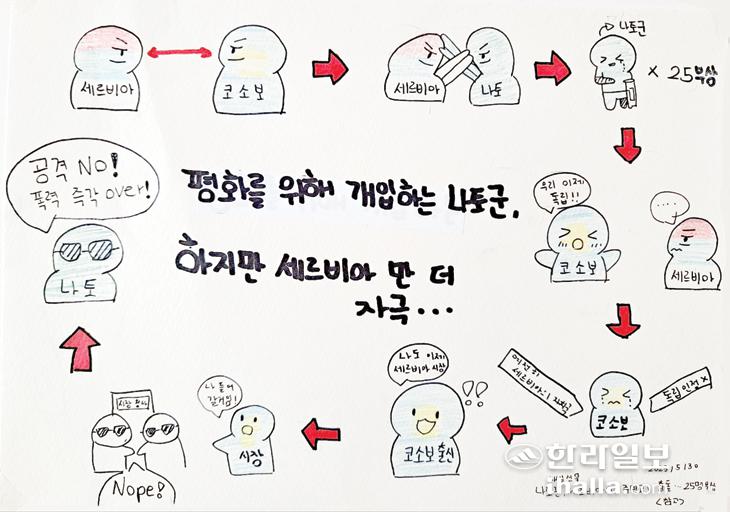 세르비아
코소보
세르비아
나토
나토군
× 25부상
공격 NO!
폭력 즉각 over!
나토
평화를 위해 개입하는 나토군,
하지만 세르비아 만 더
자극...
우리 이제
독립!!
코소보
....
세르비아
여전히
세르비아의
코소보
독립인정 X
나도 이제
세르비아 시장
!!
코소보출신
나 들어
갈거임!
시장
시장 청사
Nope!
한라일보
ihalla.com
5/30
25명부상
<참고>